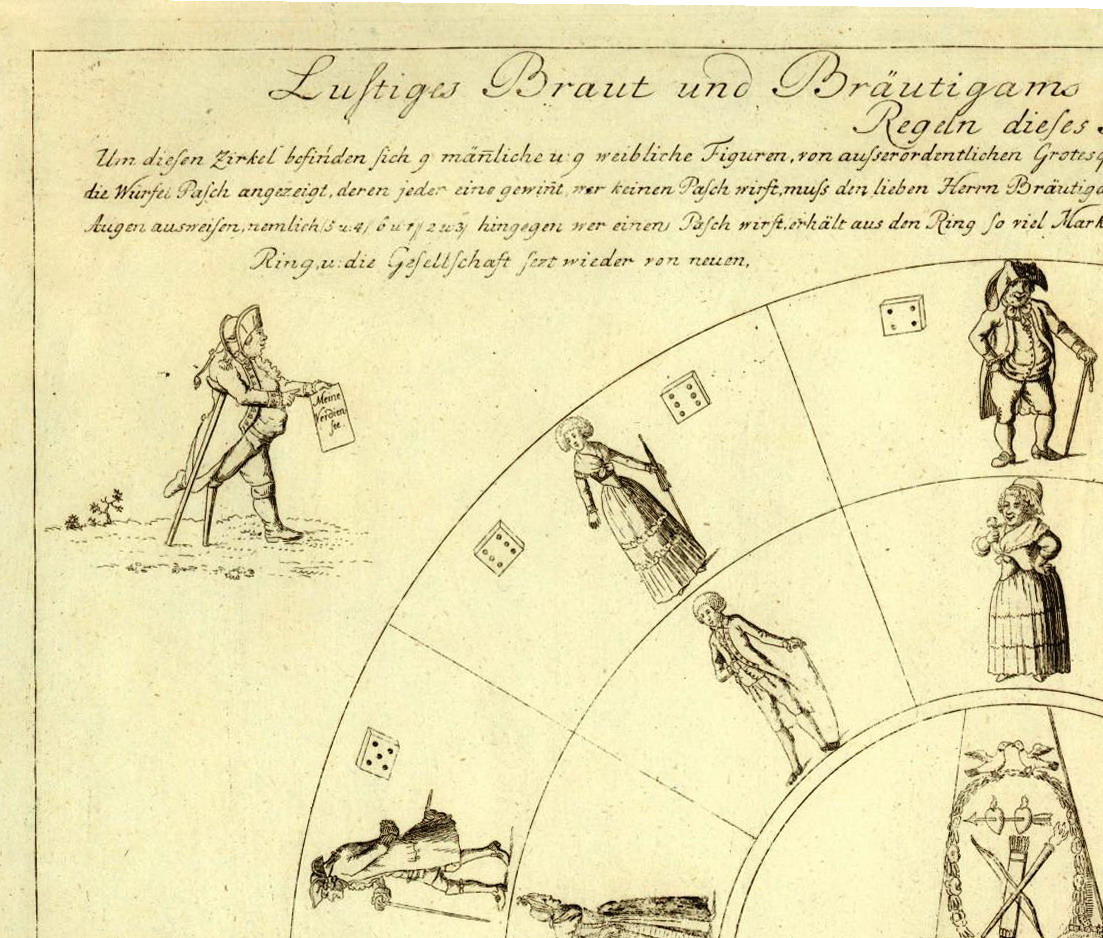 Luſtiges Braut und Bräutigams
Regeln dieſes
Um dieſen Zirkel befinden ſich 9 män̄liche u: 9 weibliche Figuren, von auſserordentlichen Grotesq
die Würfel Paſch angezeigt, deren jeder eine gewin̄t, wer keinen Paſch wirft, muſs den lieben Herrn Bräutiga
Augen ausweiſen, nemlich 5 u: 4 / 6 u: / 2 u: 3 / hingegen wer einen Paſch wirft, erhält aus den Ring ſo viel Mark
Ring, u: die Geſellſchaft ſezt wieder von neuen,
Meine
Verdien
ſte